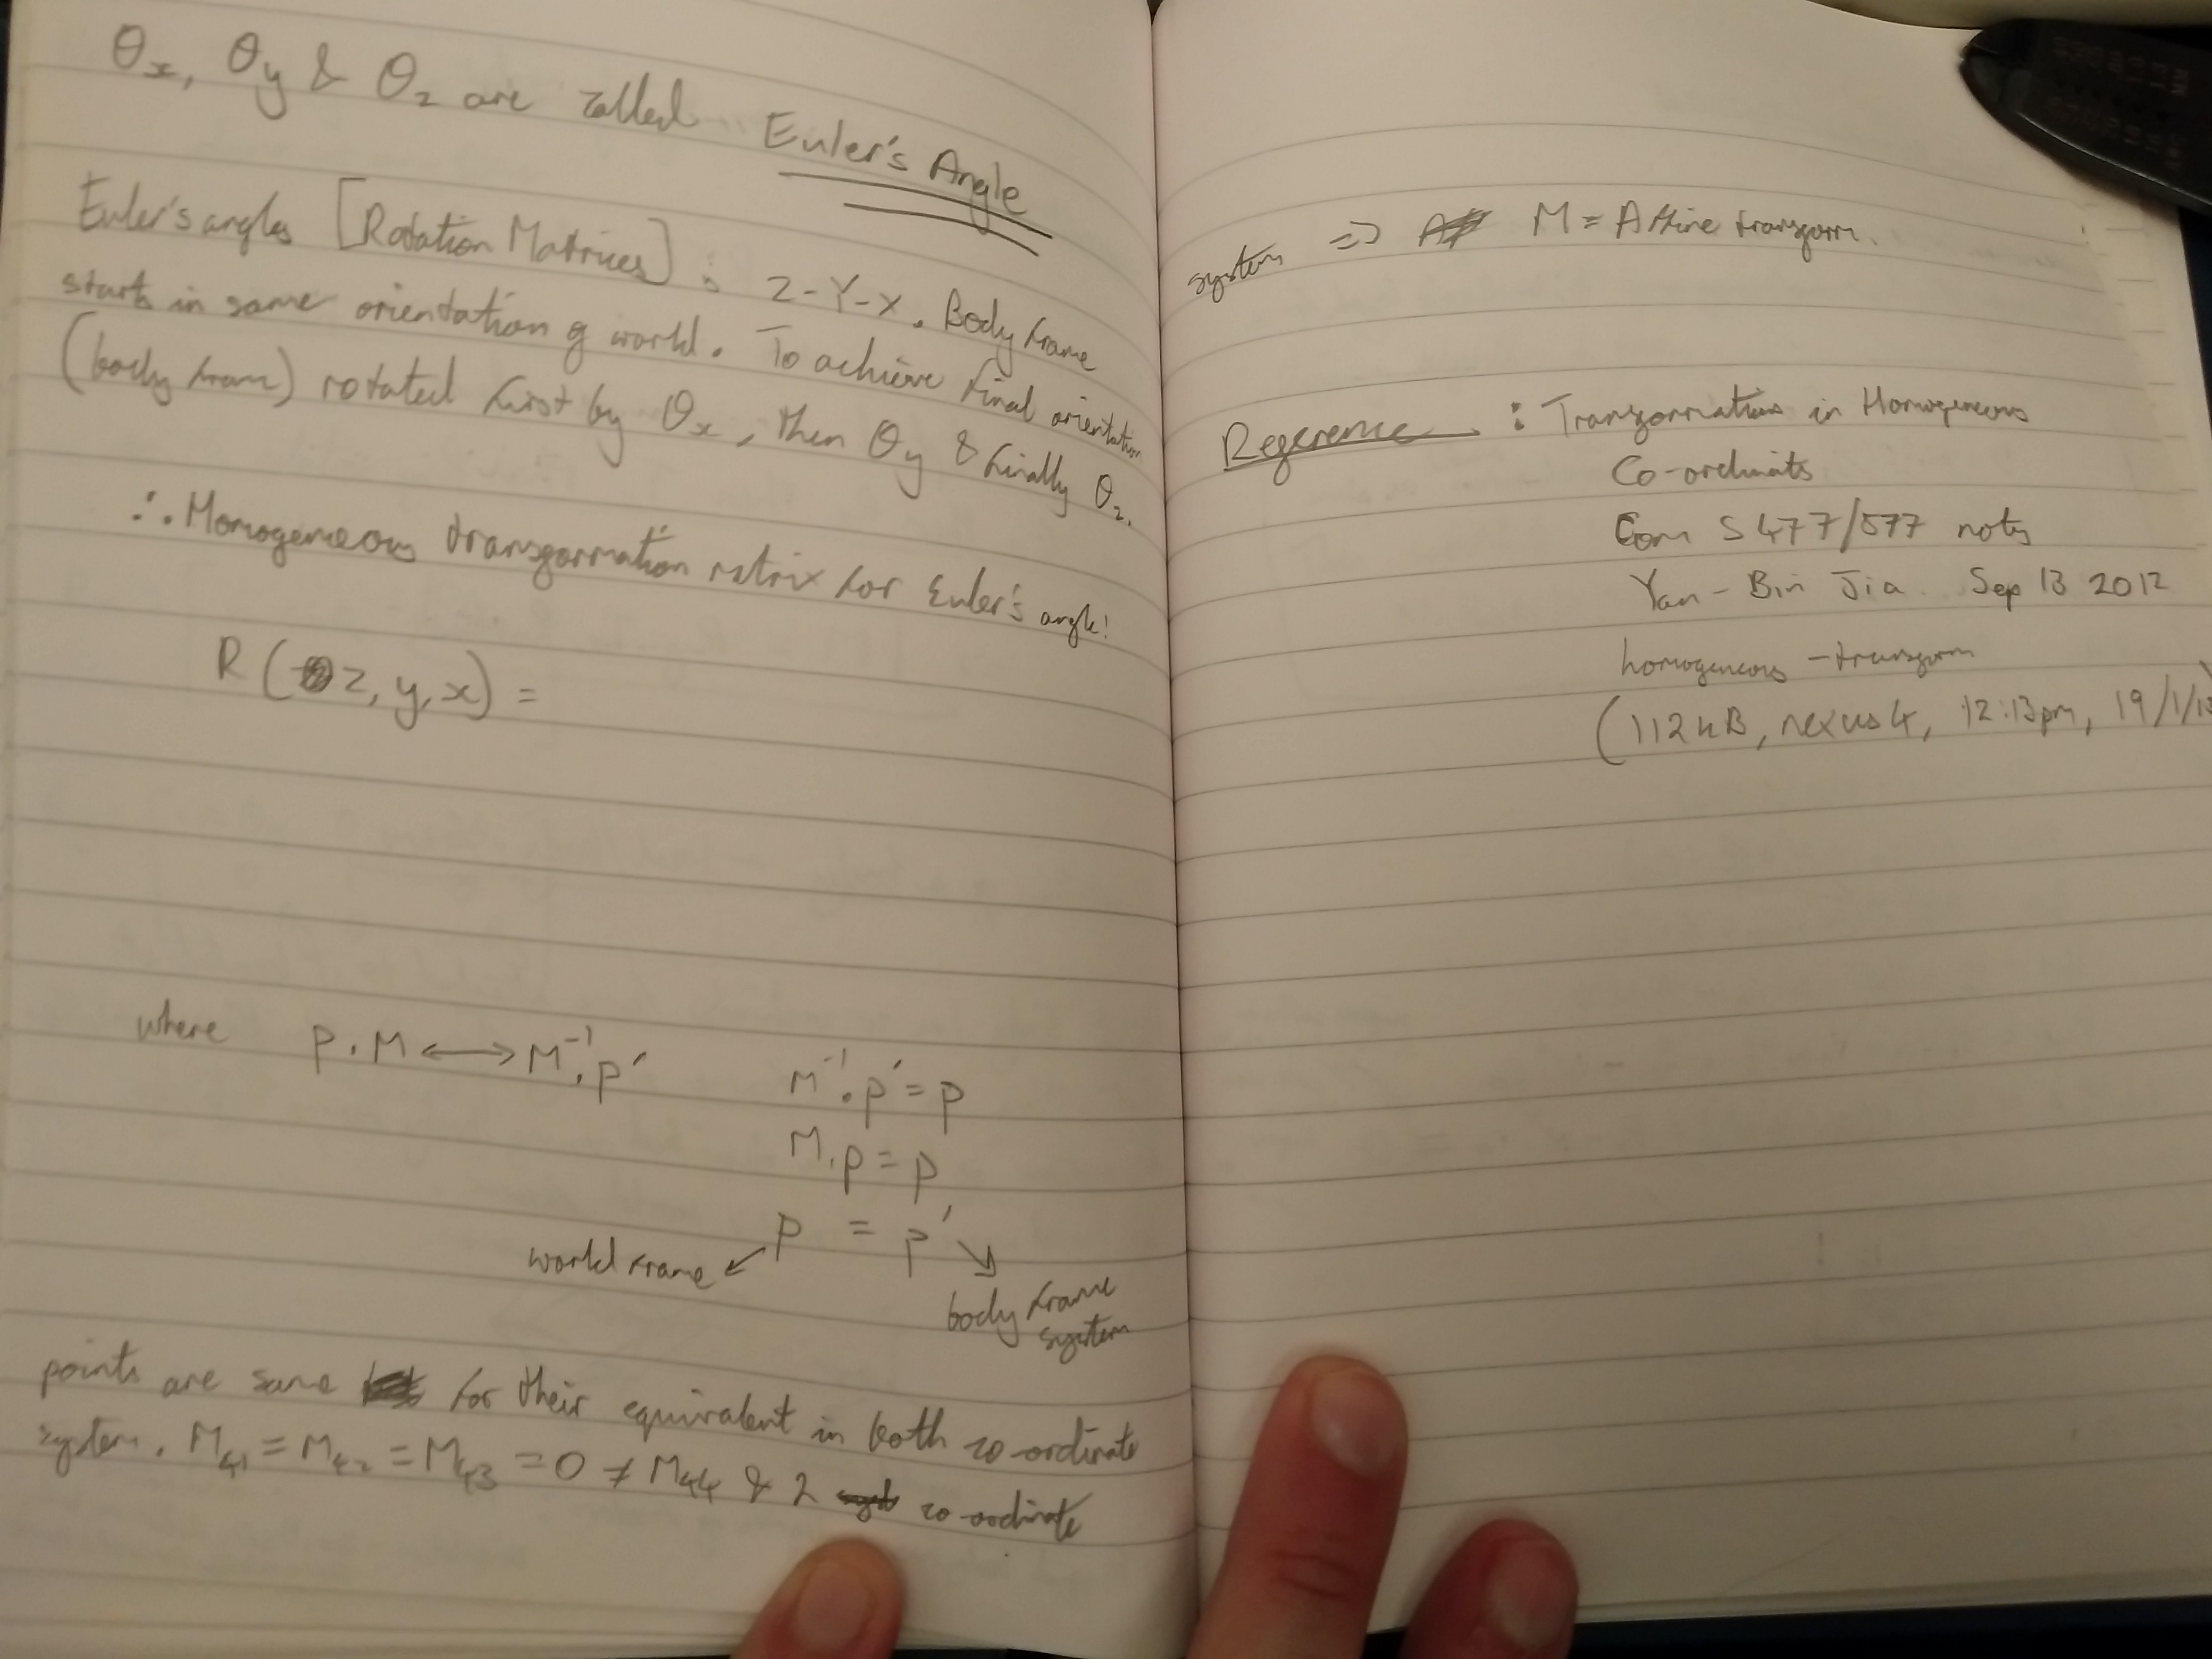 θx, θy & θz are called Euler's Angle
Euler's angles [Rotation Matrices] : Z-Y-X. Body frame
starts in same orientation of world. To achieve final orientation
(body fram) rotated first by θx, then θy & finally θz.
∴ Homogeneous transformation matrix for Euler's angle!
R(z, y, x) =
where P.M ⟷ M⁻¹.p′
M⁻¹.p′ = p
M.p = p
p = p′
world frame
body frame
system
points are same for their equivalent in both co-ordinate
system. M41 = M42 = M43 = 0 ≠ M44 & 2 co-ordinate
system => M = Affine transform.
Reference : Transformations in Homogeneous
Co-ordinats
Com S 477/577 notes
Yan-Bin Jia. Sep 13 2012
homogeneous-transform
(112kB, nexus 4, 12:13pm, 19/1/